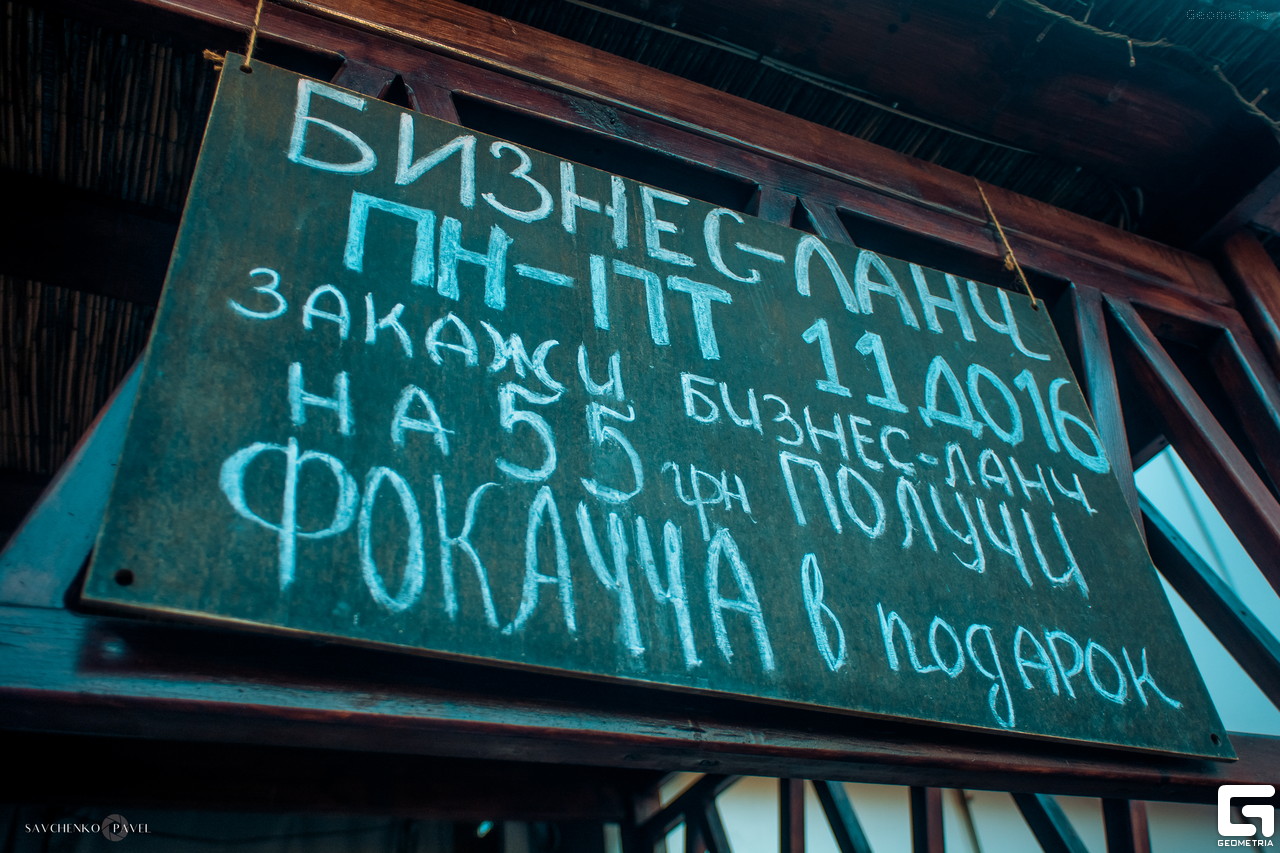 Geometria
БИЗНЕС-ЛАНЧ
ПН-ПТ 11 ДО 16
ЗАКАЖИ БИЗНЕС-ЛАНЧ
НА 55 грн ПОЛУЧИ
ФОКАЧЧА в подарок
SAVCHENKO PAVEL
GEOMETRIA